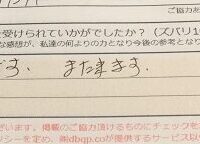 ご協力あ
を受けられていかがでしたか?(ズバリ1
な感想が、私達の何よりの力となり今後の参考となり
です。 また来ます。
います。掲載のご協力頂けるものにチェックを
シーを定め、㈱dbqp.coが提供するサービス以